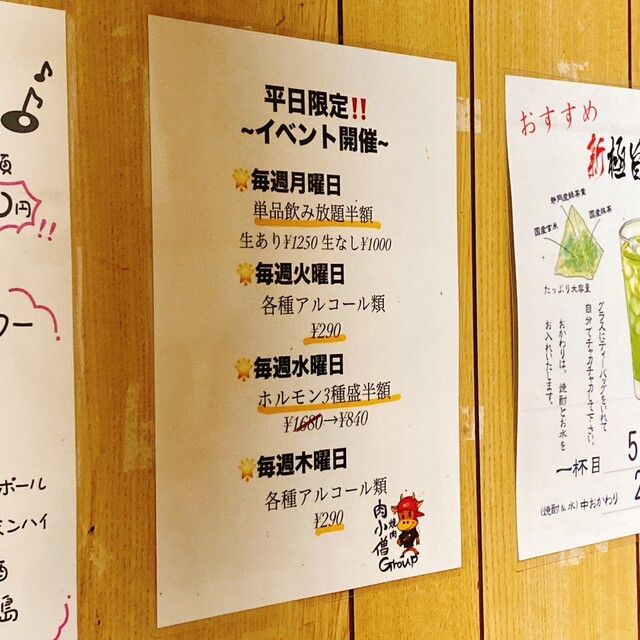 円
!!
ボール
平日限定!!
~イベント開催~
毎週月曜日
単品飲み放題半額
生あり¥1250 生なし¥1000
毎週火曜日
各種アルコール類
¥290
毎週水曜日
ホルモン3種盛半額
¥1680→¥840
毎週木曜日
各種アルコール類
¥290
焼肉
肉小僧
Group
おすすめ
新極旨
静岡産緑茶葉
国産抹茶
国産玄米
たっぷり大容量
グラスにティーバッグをいれて
自分でチャカチャカして下さい。
おかわりは、焼酎とお水を
お入れいたします。
一杯目 5
(焼酎&水)中おかわり 2